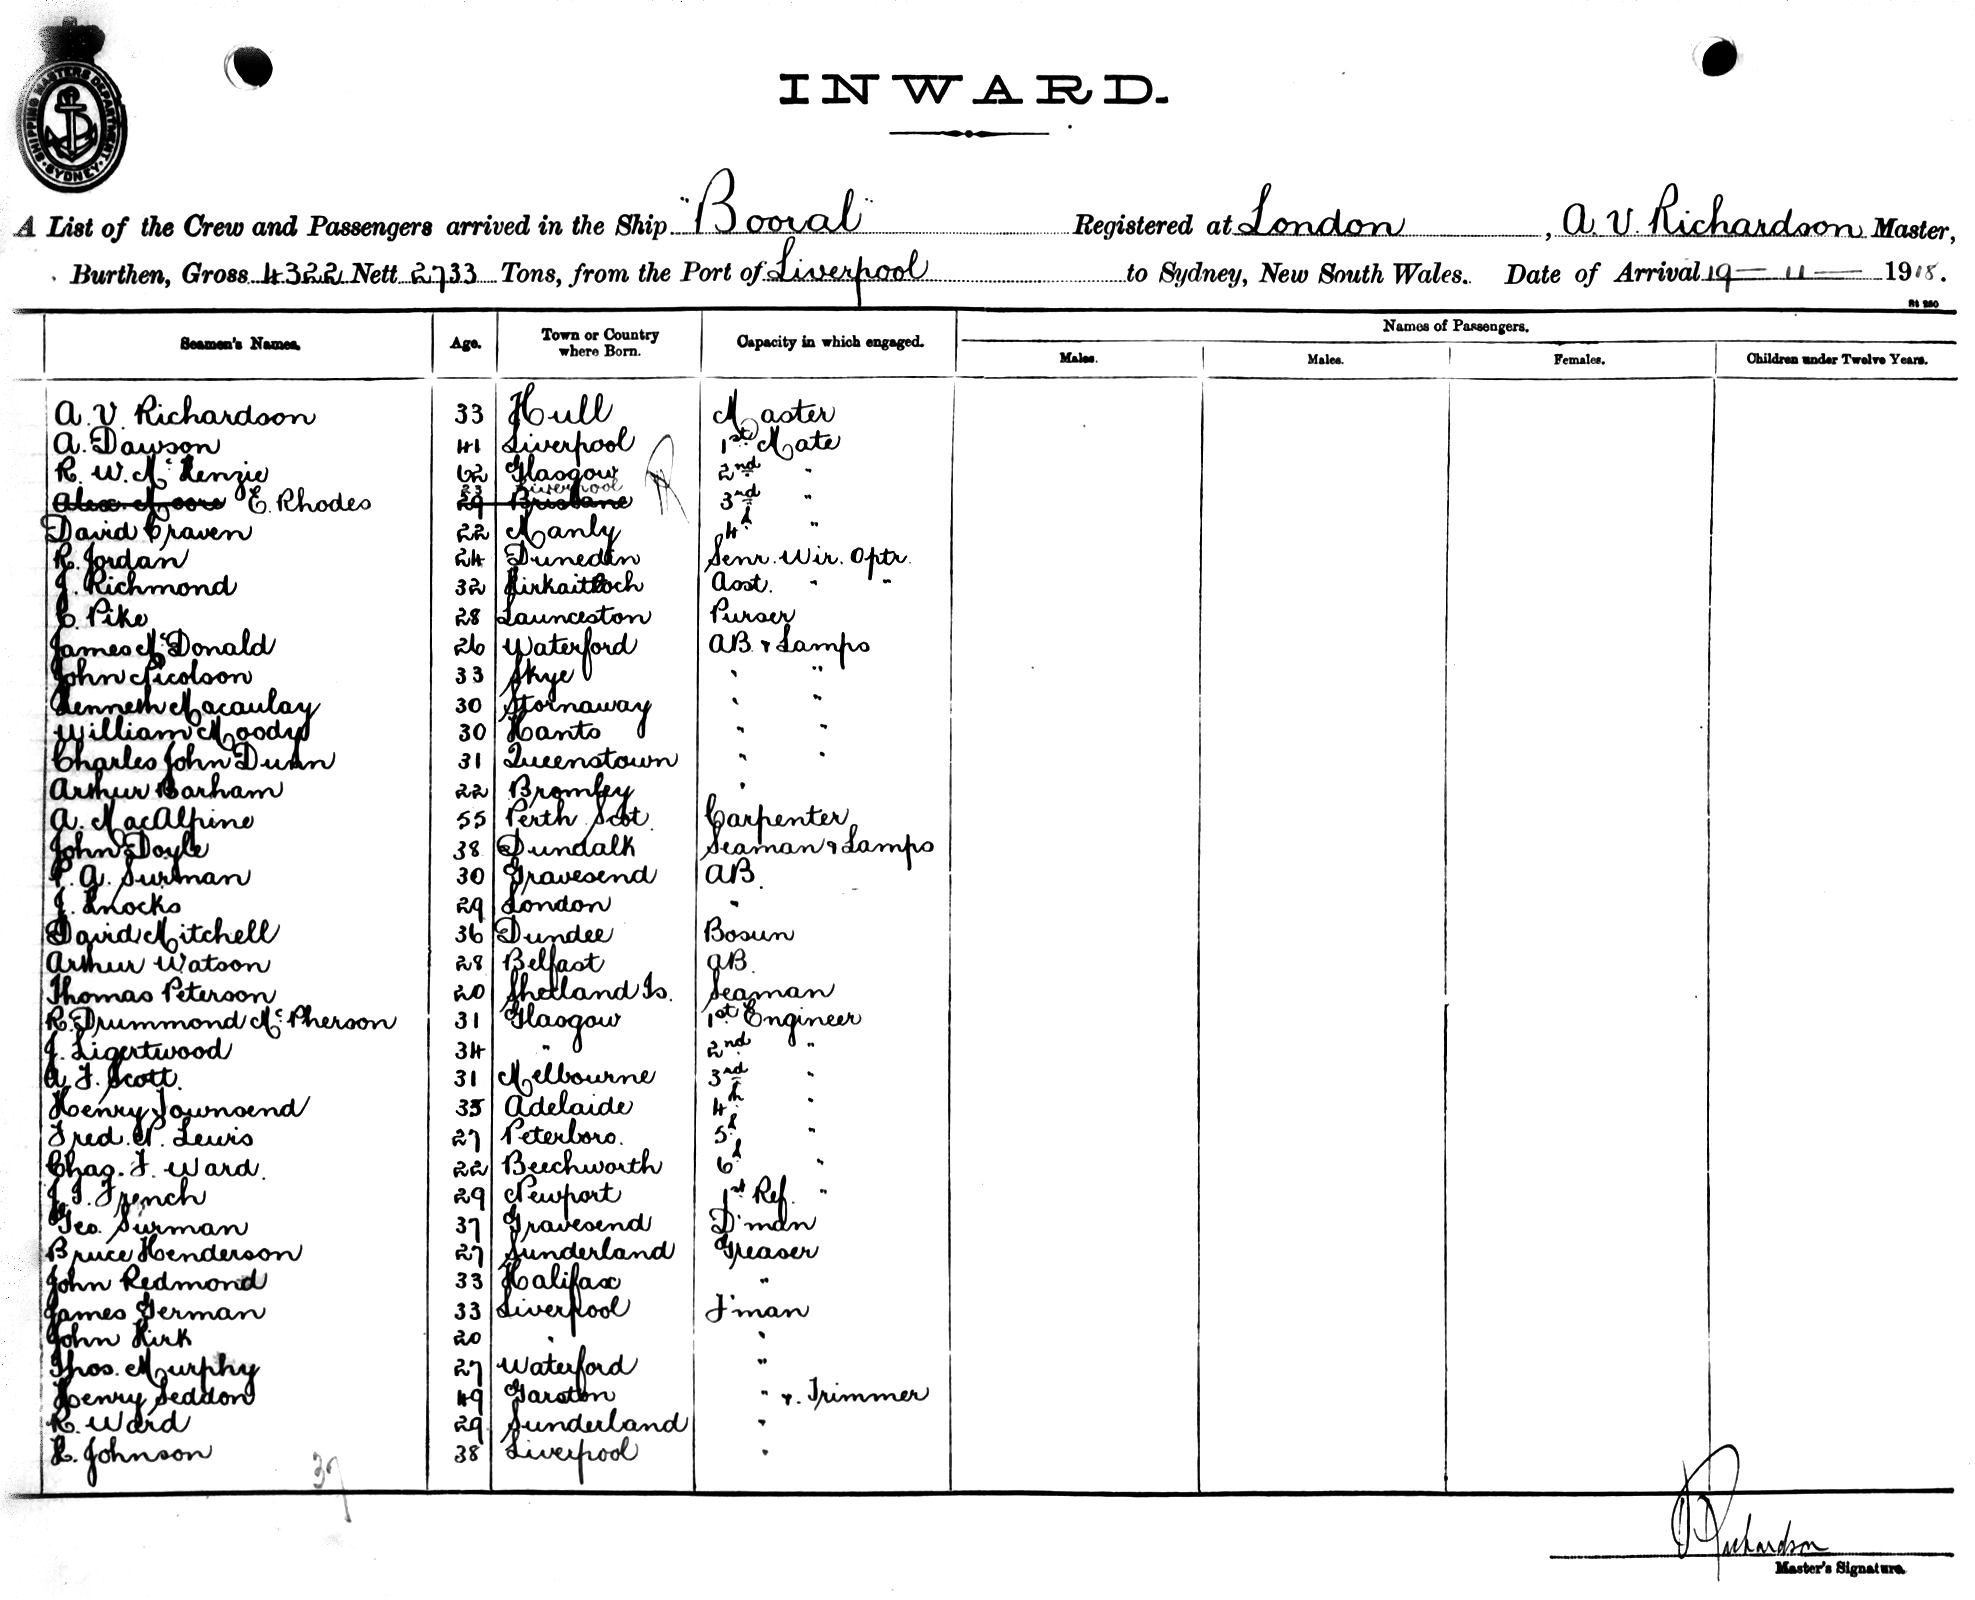 SHIPPING MASTERS DEPARTMENT · SYDNEY ·
INWARD.
A List of the Crew and Passengers arrived in the Ship "Booral" Registered at London, A. V. Richardson Master,
Burthen, Gross 4322 Nett 2733 Tons, from the Port of Liverpool to Sydney, New South Wales. Date of Arrival 19 — 11 — 1918.
Names of Passengers.
Seamen's Names. Age. Town or Country where Born. Capacity in which engaged. Males. Males. Females. Children under Twelve Years.
A. V. Richardson 33 Hull Master
A. Dawson 41 Liverpool 1st Mate
R. W. McKenzie 62 Glasgow 2nd "
23 Liverpool
Alex. Moore E. Rhodes 29 Brisbane 3rd "
David Craven 22 Manly 4th "
R. Jordan 24 Dunedin Senr. Wir. Optr.
J. Richmond 32 Kirkaitloch Asst. " "
C. Pike 28 Launceston Purser
James McDonald 26 Waterford AB & Lamps
John Nicolson 33 Skye " "
Kenneth Macaulay 30 Stornaway " "
William Moody 30 Hants " "
Charles John Dunn 31 Queenstown " "
Arthur Barham 22 Bromley "
A. MacAlpine 55 Perth Scot. Carpenter
John Doyle 38 Dundalk Seaman & Lamps
P. A. Surman 30 Gravesend AB.
J. Knocks 29 London "
David Mitchell 36 Dundee Bosun
Arthur Watson 28 Belfast AB.
Thomas Peterson 20 Shetland Is. Seaman
R. Drummond McPherson 31 Glasgow 1st Engineer
J. Ligertwood 34 " 2nd "
A. F. Scott. 31 Melbourne 3rd "
Henry Townsend 35 Adelaide 4th "
Fred. N. Lewis 27 Peterboro. 5th "
Chas. F. Ward. 22 Beechworth 6th "
J. J. French 29 Newport 1st Ref. "
Geo. Surman 37 Gravesend D'man
Bruce Henderson 27 Sunderland Greaser
John Redmond 33 Halifax "
James German 33 Liverpool F'man
John Kirk 20 " "
Thos. Murphy 27 Waterford "
Henry Seddon 49 Garston " & Trimmer
R. Ward 29 Sunderland "
L. Johnson 38 Liverpool "
37
A V Richardson
Master's Signature.